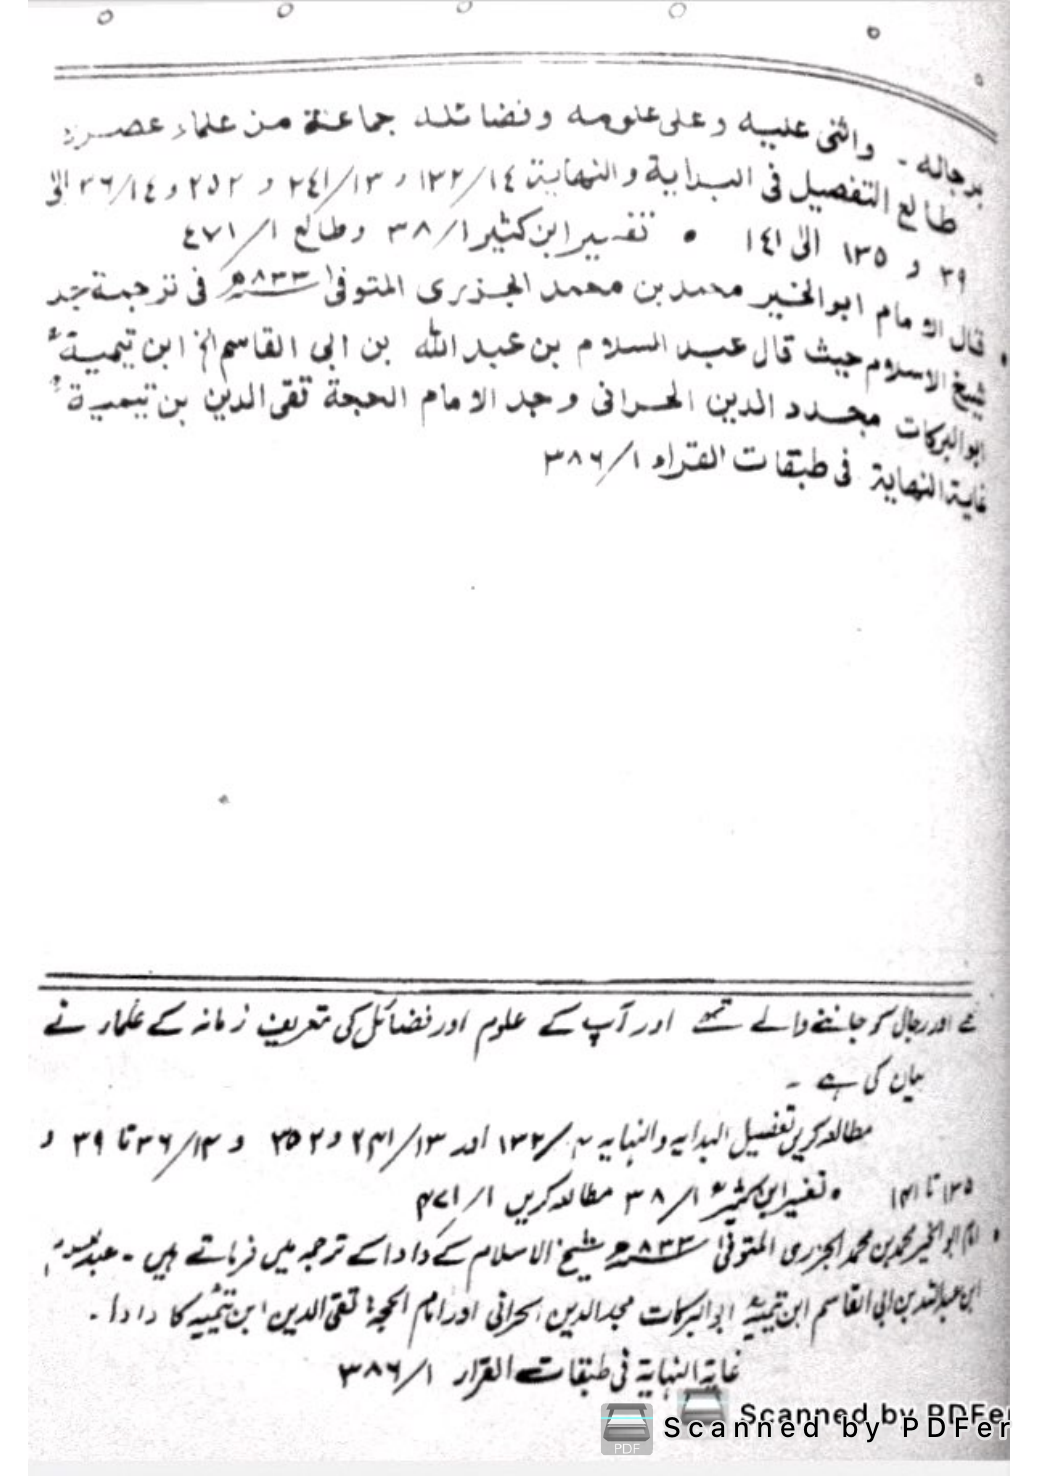 برجاله - واثنى عليه وعلى علومه وفضائله جماعة من علماء عصره
طالع التفصيل فى البداية والنهاية ١٣٢/١٤ و ٢٤١/١٣ و ٢٥٢ و ٣٦/١٤ الى
٣٩ و ١٣٥ الى ١٤١ • تفسير ابن كثير ٣٨/١ وطالع ٤٧١/١
• قال الامام ابو الخير محمد بن محمد الجزرى المتوفى ٨٣٣ه فى ترجمة جد
شيخ الاسلام حيث قال عبد السلام بن عبد الله بن ابى القاسم الخ ابن تيمية
ابو البركات مجدد الدين الحرانى وجد الامام الحجة تقى الدين بن تيمية
غاية النهاية فى طبقات القراء ٣٨٦/١
اور رجال کو جاننے والے تھے اور آپ کے علوم اور فضائل کی تعریف زمانہ کے علماء نے
بیان کی ہے -
مطالعہ کریں تفصیل البدایہ والنہایہ ۱۳۲/۱۴ اور ۲۴۱/۱۳ و ۲۵۲ و ۳۶/۱۴ تا ۳۹ و
۱۳۵ تا ۱۴۱ • تفسیر ابن کثیر ۳۸/۱ مطالعہ کریں ۴۷۱/۱
• امام ابو الخیر محمد بن محمد الجزری المتوفیٰ ۸۳۳ھ شیخ الاسلام کے دادا کے ترجمہ میں فرماتے ہیں - عبد السلام
ابن عبد اللہ بن ابی القاسم ابن تیمیہ ابو البرکات مجد الدین الحرانی اور امام الحجۃ تقی الدین ابن تیمیہ کا دادا .
غایۃ النہایۃ فی طبقات القراء ۳۸۶/۱
Scanned by PDFer
Scanned by PDFer
PDF